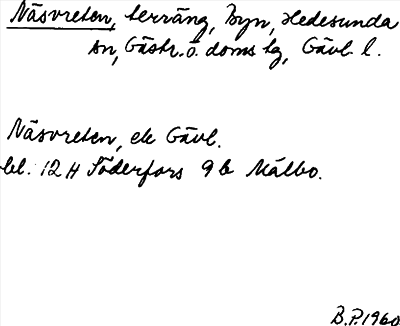 Näsvreten, terräng, Byn, Hedesunda
sn, Gästr. ö. doms tg, Gävl. l.
Näsvreten, ek Gävl.
bl. 12 H Söderfors 9 b Målbo.
B.P. 1960